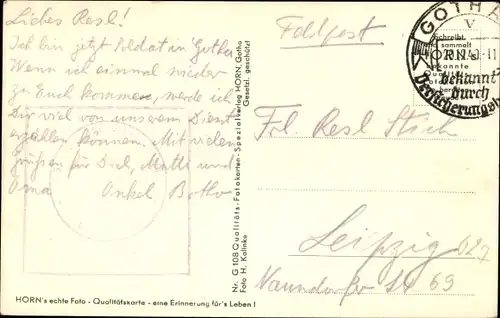 Liebes Resl!
Ich bin jetzt Soldat in Gotha
Wenn ich einmal wieder
zu Euch kommen, werde ich
Dir viel von unserem Dienst
erzählen können. Mit vielen
Grüßen für Dich, Mutti und
Oma Onkel Botho
HORN's echte Foto - Qualitätskarte - eine Erinnerung für's Leben !
Nr. G 108 Qualitäts-Fotokarten-Spezialverlag HORN, Gotha
Foto H. Kalinke Gesetzl. geschützt
Feldpost
GOTHA
V
Schreibt
und sammelt
HORN's
bekannte
bekannt
durch
Versicherungs
Frl. Resl
Leipzig O27
Naundorfer Str 69